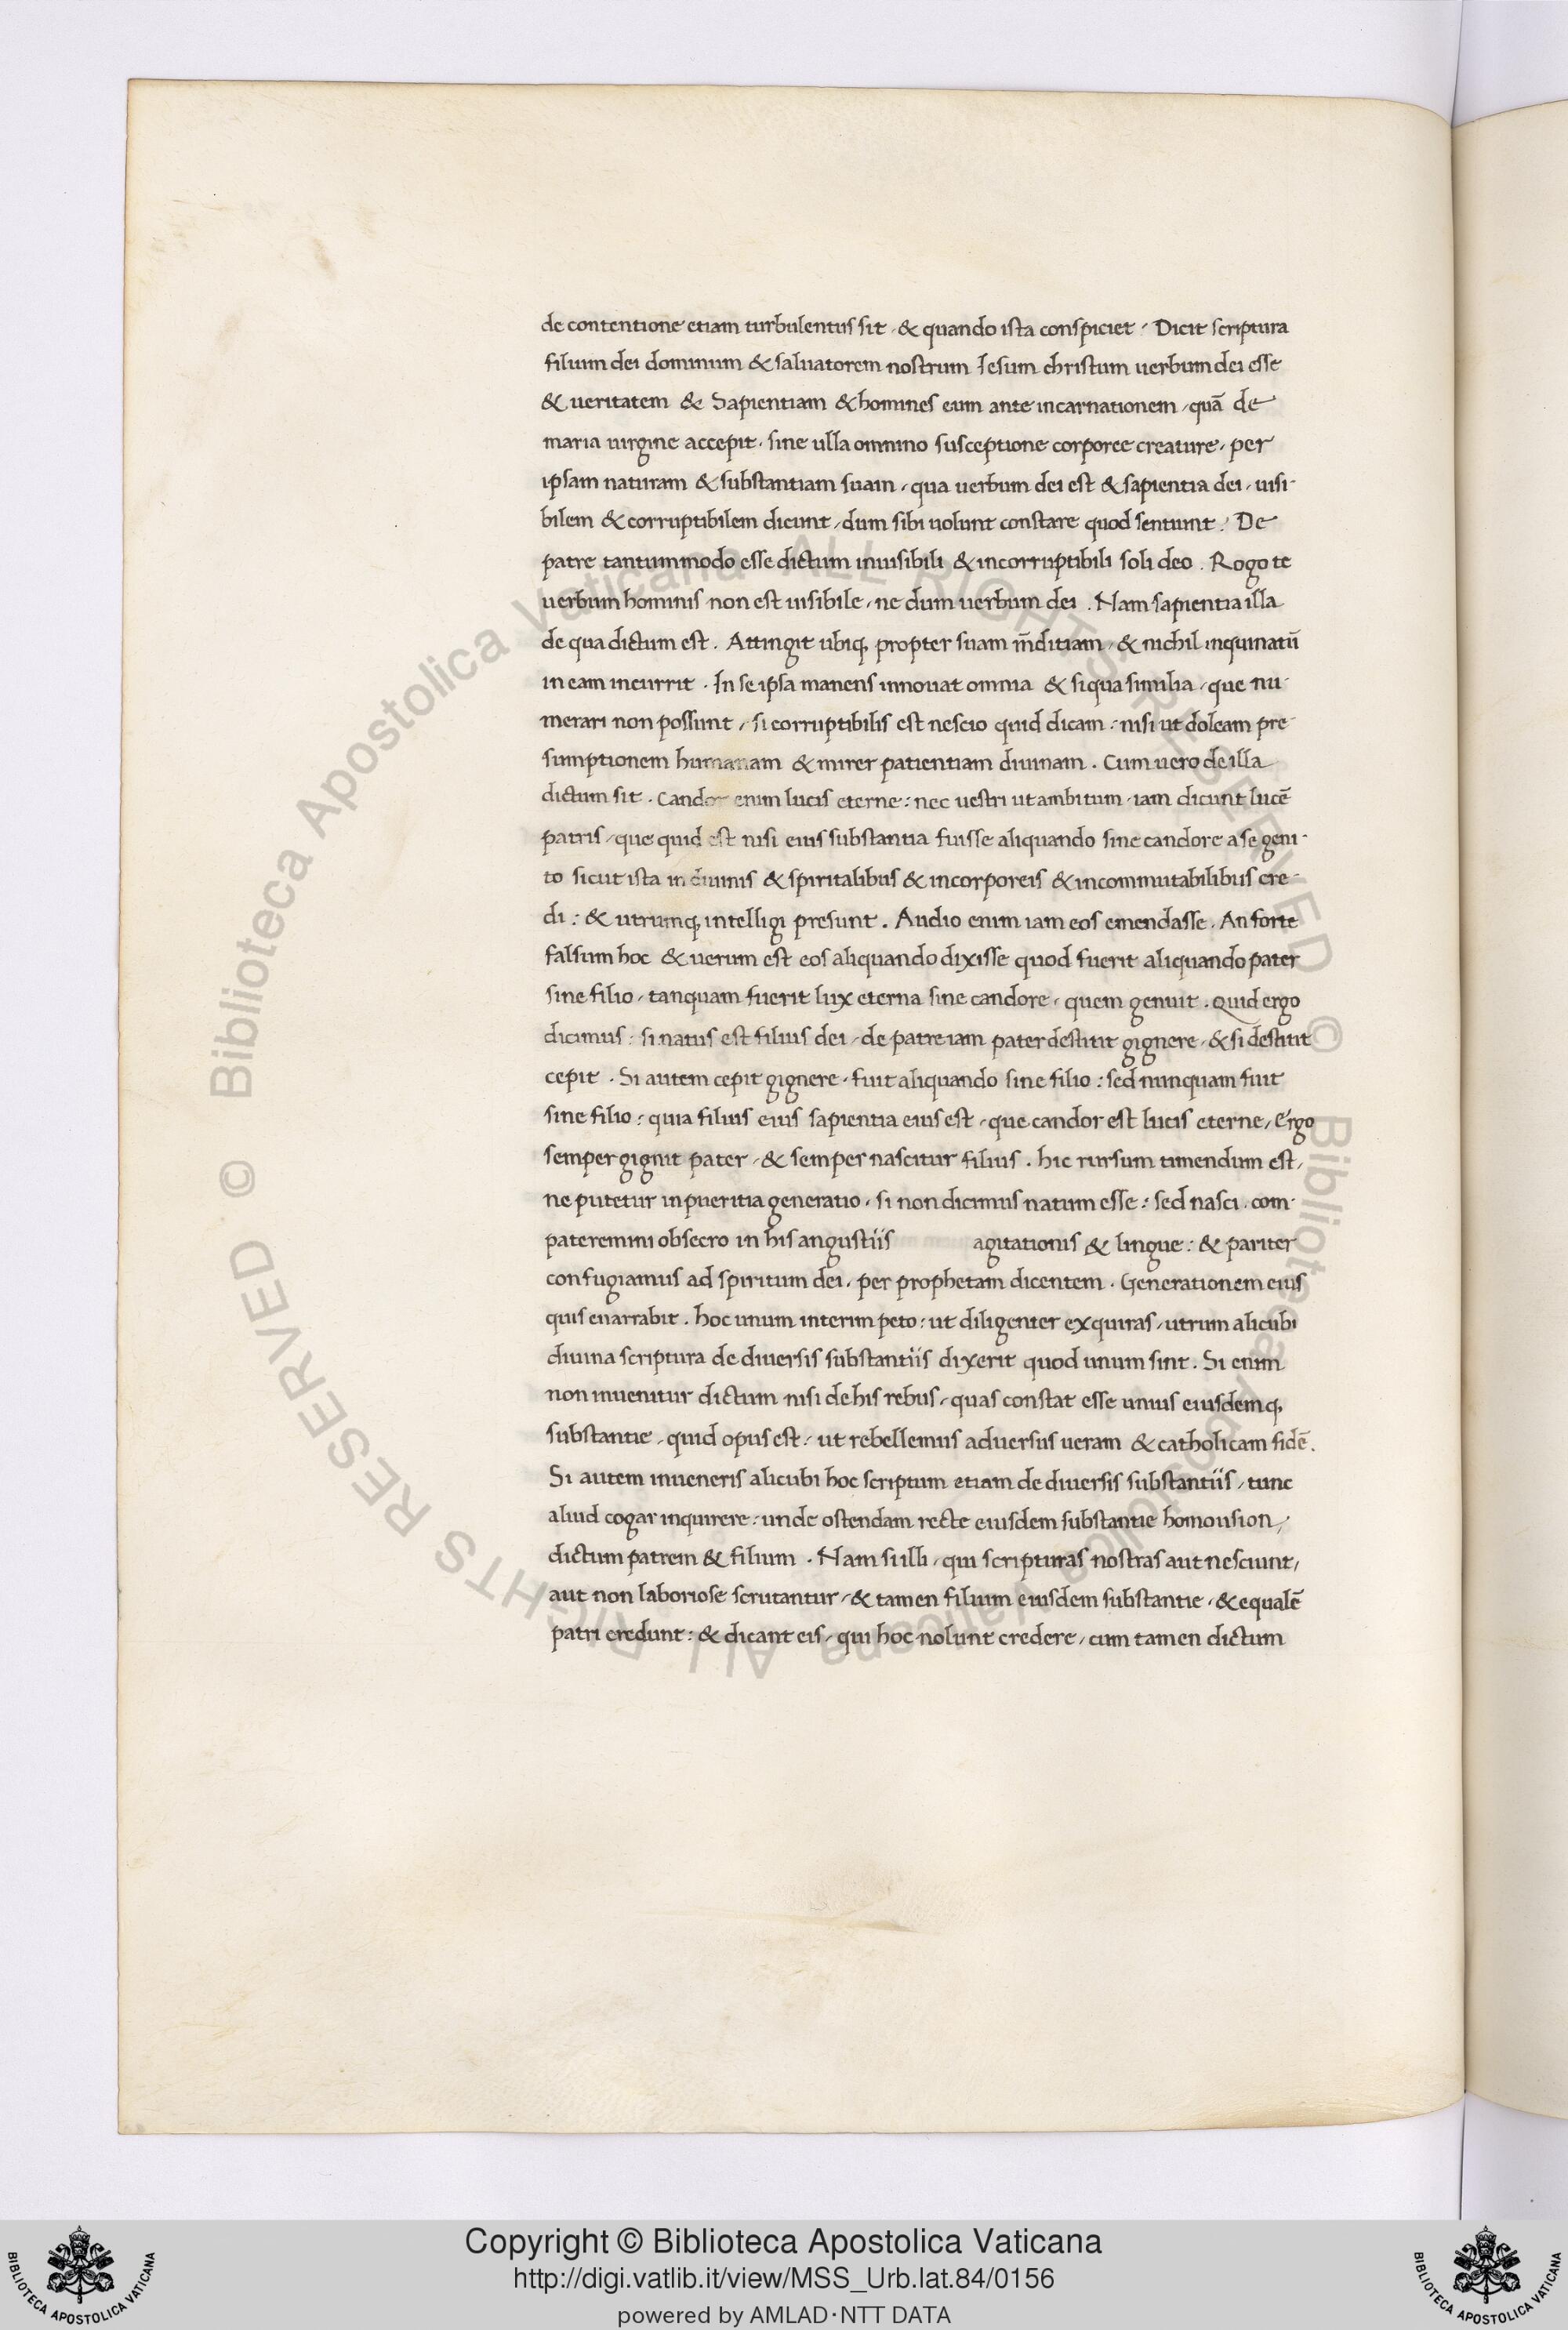 de contentione etiam turbulentus sit · & quando ista conspiciet · Dicit scriptura
filium dei dominum & saluatorem nostrum Iesum christum uerbum dei esse
& ueritatem & Sapientiam & homines eum ante incarnationem · quā de
maria uirgine accepit · sine ulla omnino susceptione corporee creature · per
ipsam naturam & substantiam suam · qua uerbum dei est & sapientia dei · uisi-
bilem & corruptibilem dicunt · dum sibi uolunt constare quod sentiunt : De
patre tantummodo esse dictum inuisibili & incorruptibili soli deo . Rogo te
uerbum hominis non est uisibile · ne dum uerbum dei . Nam sapientia illa
de qua dictum est . Attingit ubiq, propter suam m̄ditiam · & nichil inquinatū
in eam incurrit . In se ipsa manens innouat omnia & siqua similia · que nu-
merari non possunt · si corruptibilis est nescio quid dicam : nisi ut doleam pre-
sumptionem humanam & mirer patientiam diuinam . Cum uero de illa
dictum sit . Candor enim lucis eterne : nec uestri ut ambitum · iam dicunt lucē
patris · que quid est nisi eius substantia fuisse aliquando sine candore a se geni-
to sicut ista in diuinis & spiritalibus & incorporeis & incommutabilibus cre-
di : & utrumq, intelligi presunt . Audio enim iam eos emendasse . An forte
falsum hoc & uerum est eos aliquando dixisse quod fuerit aliquando pater
sine filio · tanquam fuerit lux eterna sine candore · quem genuit . Quid ergo
dicimus : si natus est filius dei · de patre iam pater destitit gignere · & si destitit
cepit . Si autem cepit gignere · fuit aliquando sine filio : sed nunquam fuit
sine filio : quia filius eius sapientia eius est · que candor est lucis eterne · Ergo
semper gignit pater · & semper nascitur filius . hic rursum timendum est ·
ne putetur inpueritia generatio · si non dicimus natum esse : sed nasci . com-
pateremini obsecro in his angustiis agitationis & lingue : & pariter
confugiamus ad spiritum dei · per prophetam dicentem . Generationem eius
quis enarrabit . hoc unum interim peto : ut diligenter exquiras · utrum alicubi
diuina scriptura de diuersis substantiis dixerit quod unum sint . Si enim
non inuenitur dictum nisi de his rebus · quas constat esse unius eiusdemq,
substantie · quid opus est · ut rebellemus aduersus ueram & catholicam fidē .
Si autem inueneris alicubi hoc scriptum etiam de diuersis substantiis · tunc
aliud cogar inquirere : unde ostendam recte eiusdem substantie homousion ·
dictum patrem & filium . Nam si illi · qui scripturas nostras aut nesciunt ·
aut non laboriose scrutantur · & tamen filium eiusdem substantie · & equalē
patri credunt : & dicant eis · qui hoc nolunt credere · cum tamen dictum
© Biblioteca Apostolica Vaticana ALL RIGHTS RESERVED
© Biblioteca Apostolica Vaticana ALL RIGHTS RESERVED
Copyright © Biblioteca Apostolica Vaticana
http://digi.vatlib.it/view/MSS_Urb.lat.84/0156
powered by AMLAD·NTT DATA
BIBLIOTECA APOSTOLICA VATICANA
BIBLIOTECA APOSTOLICA VATICANA